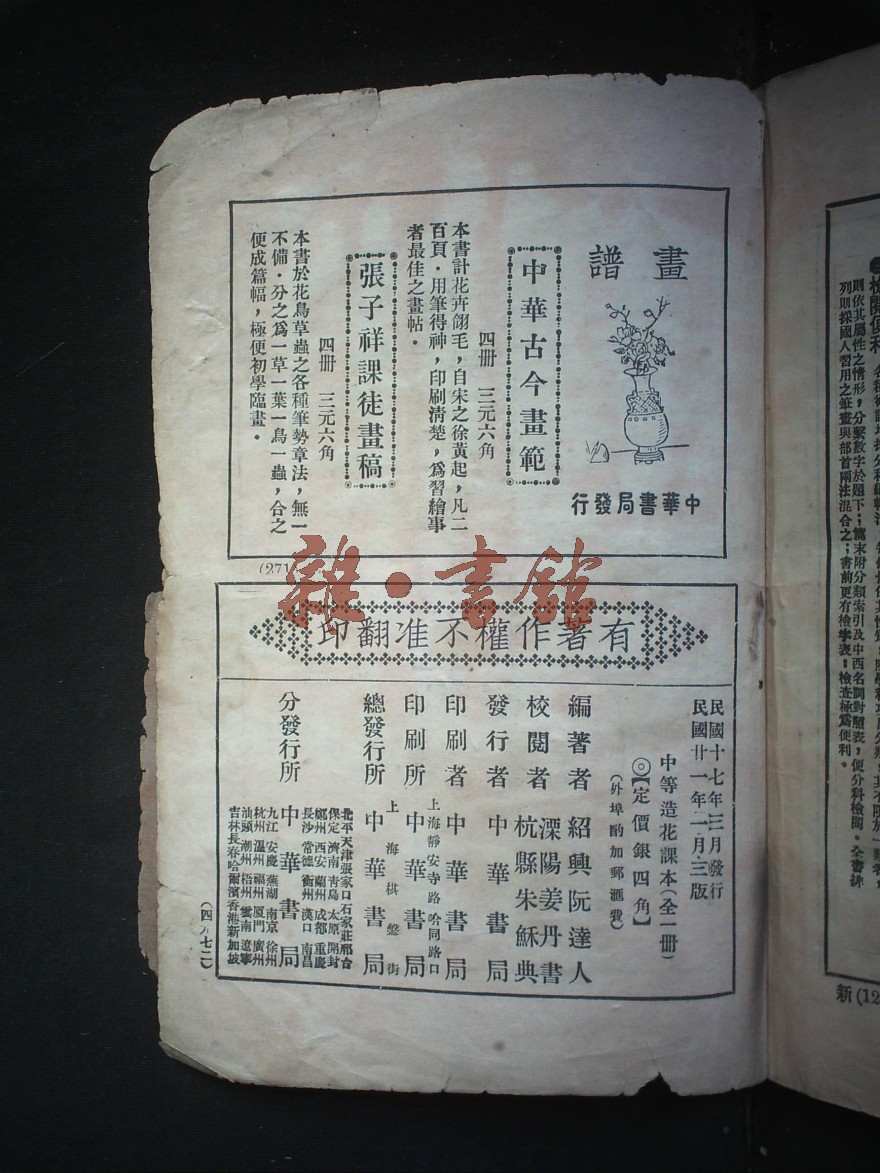 畫譜
中華書局發行
中華古今畫範
四冊 三元六角
本書計花卉翎毛，自宋之徐黃起，凡二
百頁．用筆得神，印刷清楚，爲習繪事
者最佳之畫帖．
張子祥課徒畫稿
四冊 三元六角
本書於花鳥草蟲之各種筆勢章法，無一
不備．分之爲一草一葉一鳥一蟲，合之
便成篇幅，極便初學臨畫．
(271)
雜·書館
有著作權不准翻印
民國十七年三月發行
民國廿一年二月三版
中等造花課本（全一册）
◎【定價銀四角】
（外埠酌加郵滙費）
編著者 紹興阮達人
校閱者 溧陽姜丹書
杭縣朱穌典
發行者 中華書局
印刷者 中華書局
上海靜安寺路哈同路口
印刷所 中華書局
上海棋盤街
總發行所 中華書局
分發行所 中華書局
北平天津張家口石家莊邢台
保定 濟南 青島 太原 開封
鄭州 西安 蘭州 成都 重慶
長沙 常德 衡州 漢口 南昌
九江 安慶 蕪湖 南京 徐州
杭州 溫州 福州 厦門 廣州
汕頭 潮州 梧州 雲南 遼寧
吉林長春哈爾濱香港新加坡
則依其屬性之情形，分繫數字於題下；篇末附分類索引及中西名詞對照表，便分科檢閱．全書排
列則採國人習用之筆畫與部首兩法混合之；書前更有檢字表；檢查極爲便利。
新(12